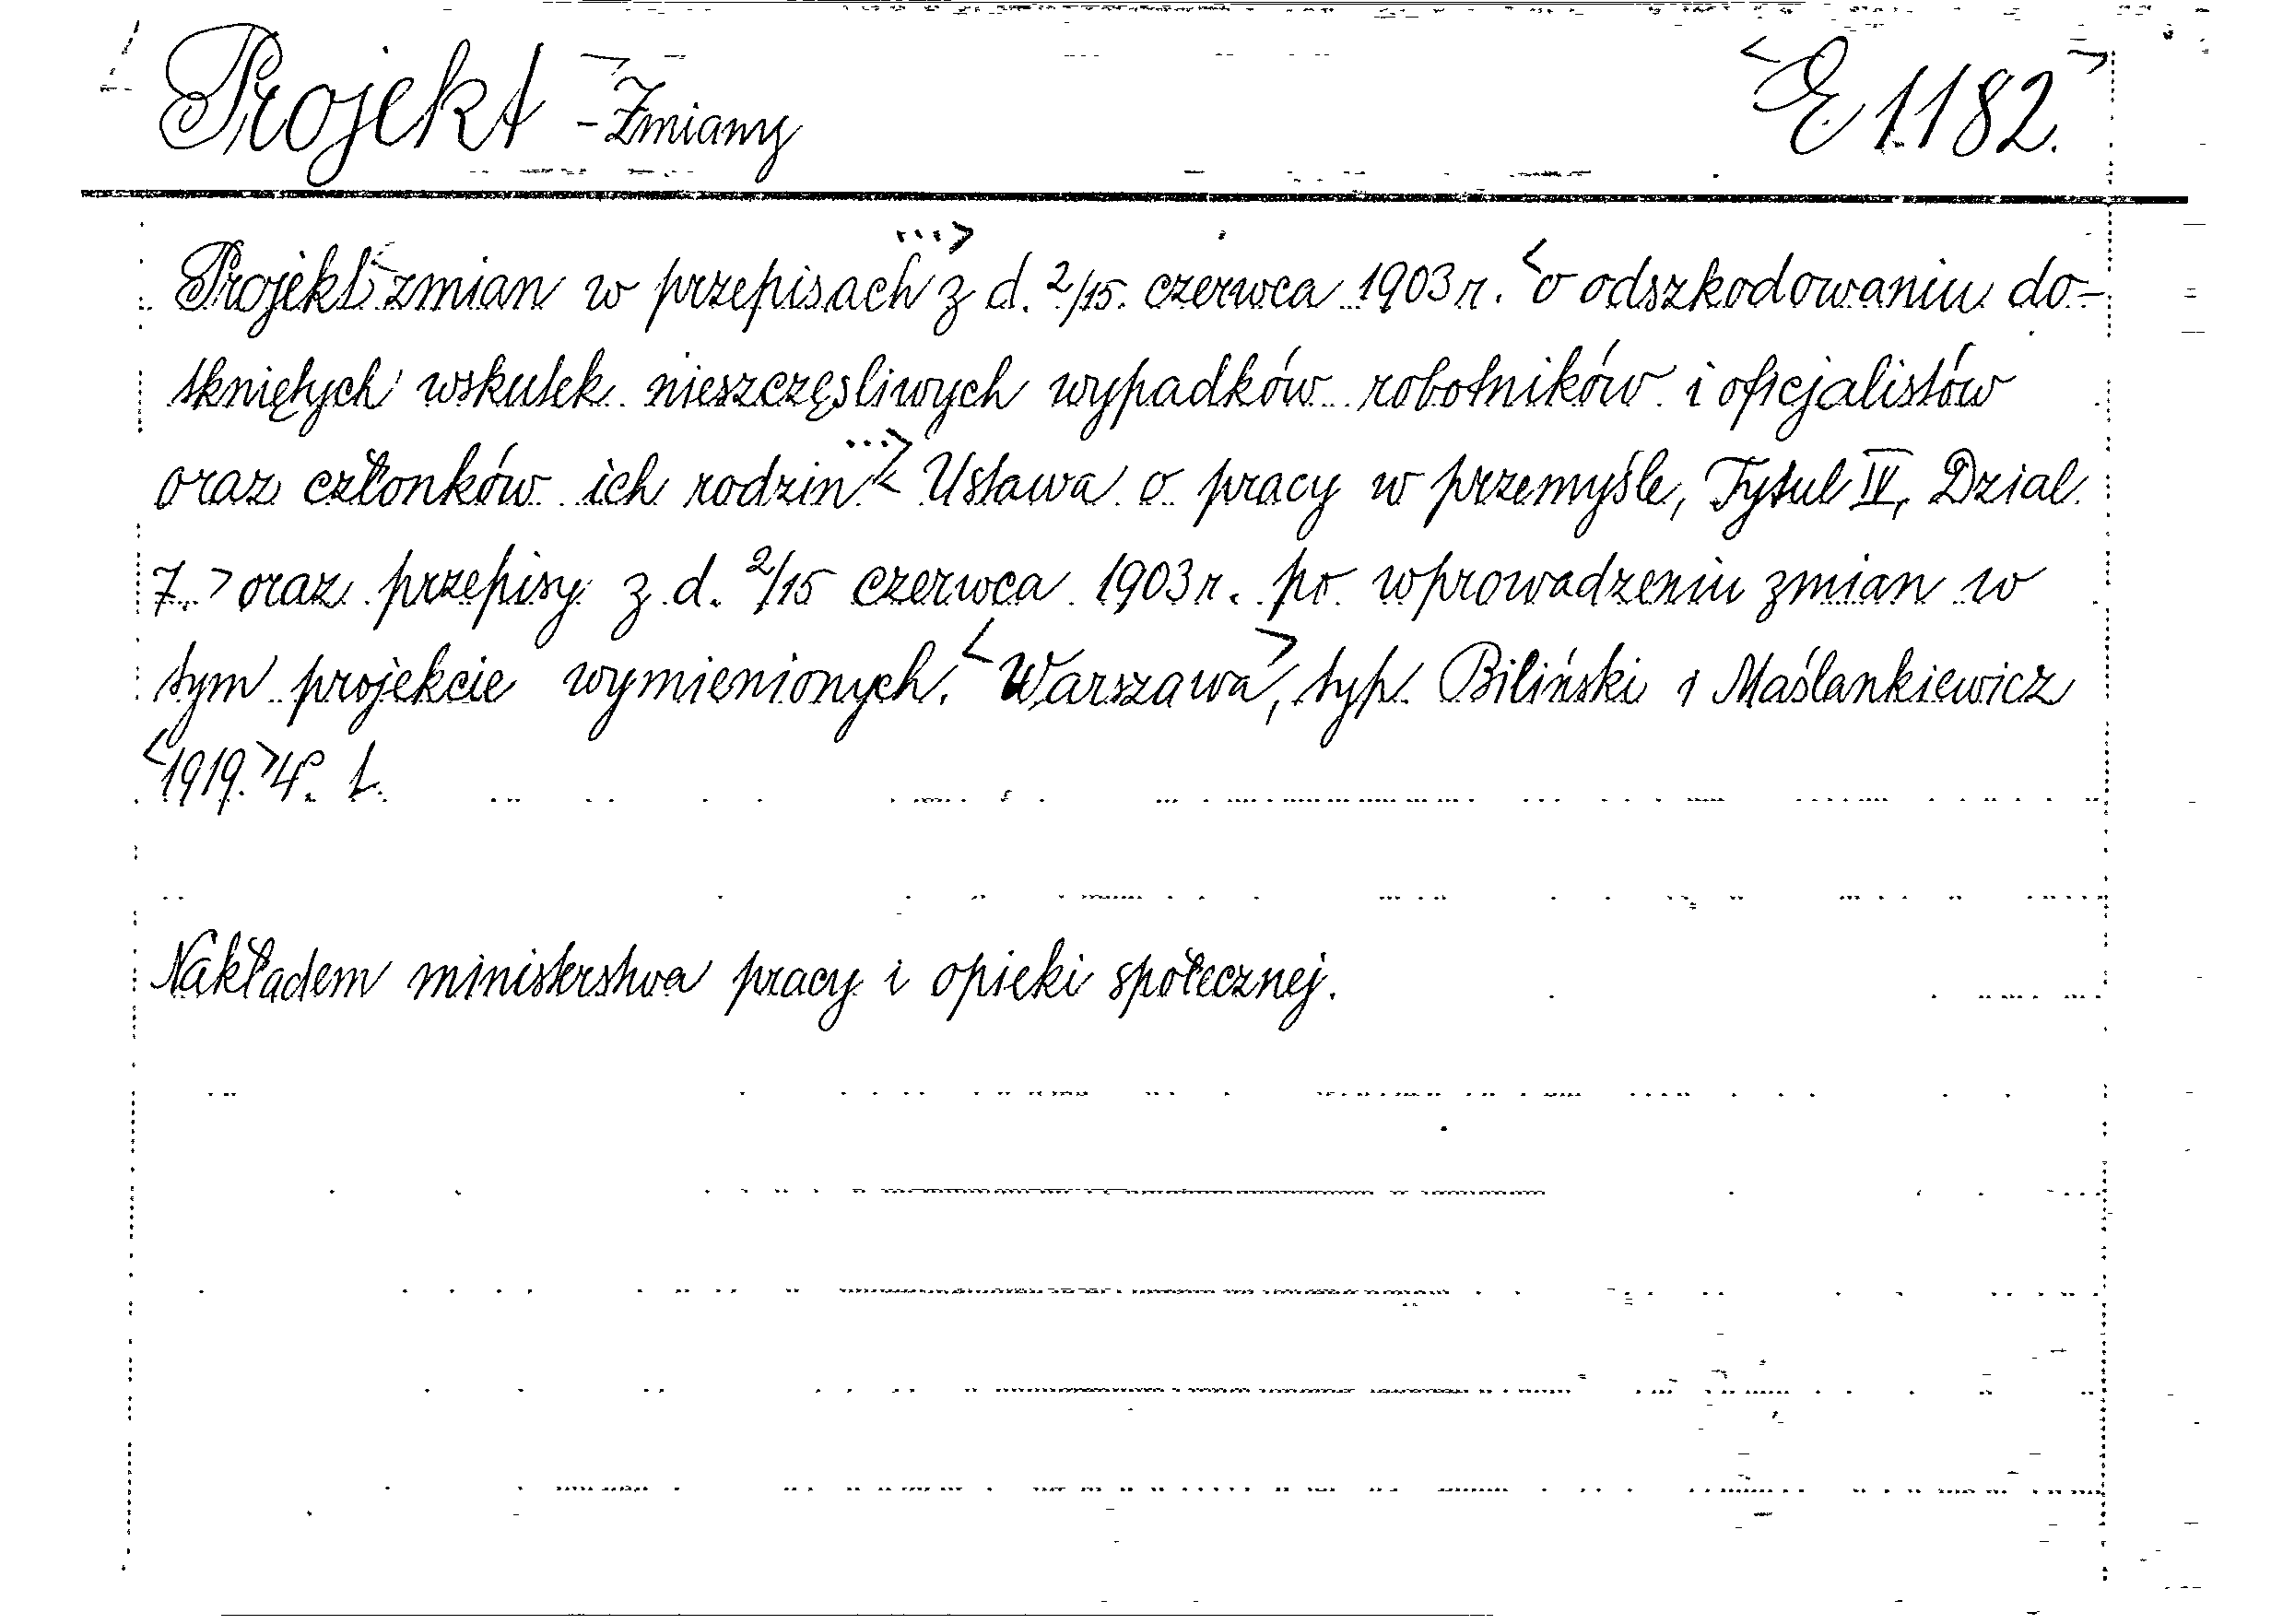 Projekt - Zmiany <E 1182.>
Projekt < zmian w przepisach ...> z d. 2/15. czerwca 1903 r. < o odszkodowaniu do-
tkniętych wskutek nieszczęsliwych wypadków robotników i oficjalistów
oraz członków ich rodzin ...> < Ustawa o pracy w przemyśle, Tytul IV, Dzial
7. > oraz przepisy z d. 2/15 czerwca 1903 r. po wprowadzeniu zmian w
tym projekcie wymienionych. < Warszawa >, typ. Biliński i Maślankiewicz
<1919.> 4°.
Nakładem ministerstwa pracy i opieki społecznej.